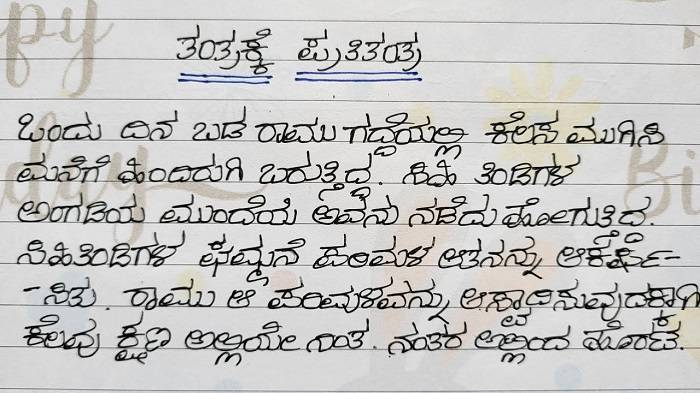 ತಂತ್ರಕ್ಕೆ ಪ್ರತಿತಂತ್ರ
ಒಂದು ದಿನ ಬಡ ರಾಮು ಗದ್ದೆಯಲ್ಲಿ ಕೆಲಸ ಮುಗಿಸಿ
ಮನೆಗೆ ಹಿಂದಿರುಗಿ ಬರುತ್ತಿದ್ದ. ಸಿಹಿ ತಿಂಡಿಗಳ
ಅಂಗಡಿಯ ಮುಂದೆಯೆ ಅವನು ನಡೆದು ಹೋಗುತ್ತಿದ್ದ.
ಸಿಹಿತಿಂಡಿಗಳ ಘಮ್ಮನೆ ಪರಿಮಳ ಆತನನ್ನು ಆಕರ್ಷಿ-
-ಸಿತು. ರಾಮು ಆ ಪರಿಮಳವನ್ನು ಆಸ್ವಾದಿಸುವುದಕ್ಕಾಗಿ
ಕೆಲವು ಕ್ಷಣ ಅಲ್ಲಿಯೇ ನಿಂತ. ನಂತರ ಅಲ್ಲಿಂದ ಹೊರಟ.